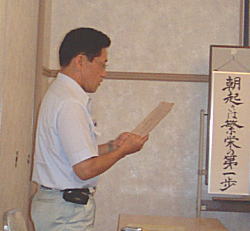 朝起きは繁栄の第一歩